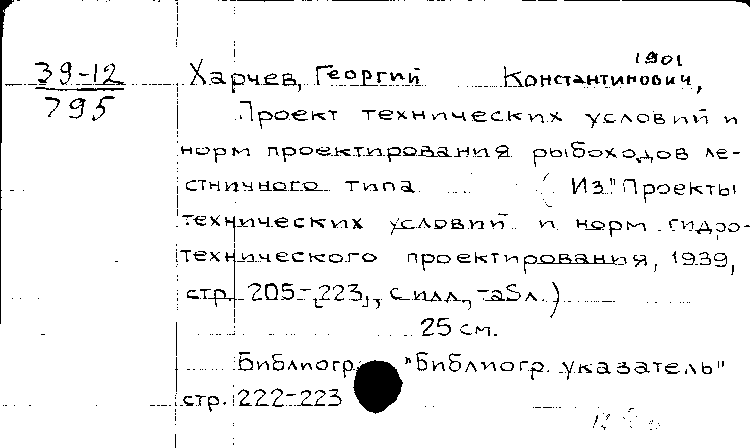 1901
39-12 Харчев, Георгий Константинович,
795
Проект технических условий и
норм проектирования рыбоходов ле-
стничного типа (Из "Проекты
технических условий и норм гидро-
технического проектирования, 1939,
стр. 205-[223], с илл., табл.)
25 см.
Библиогр. "Библиогр. указатель"
стр. 222-223